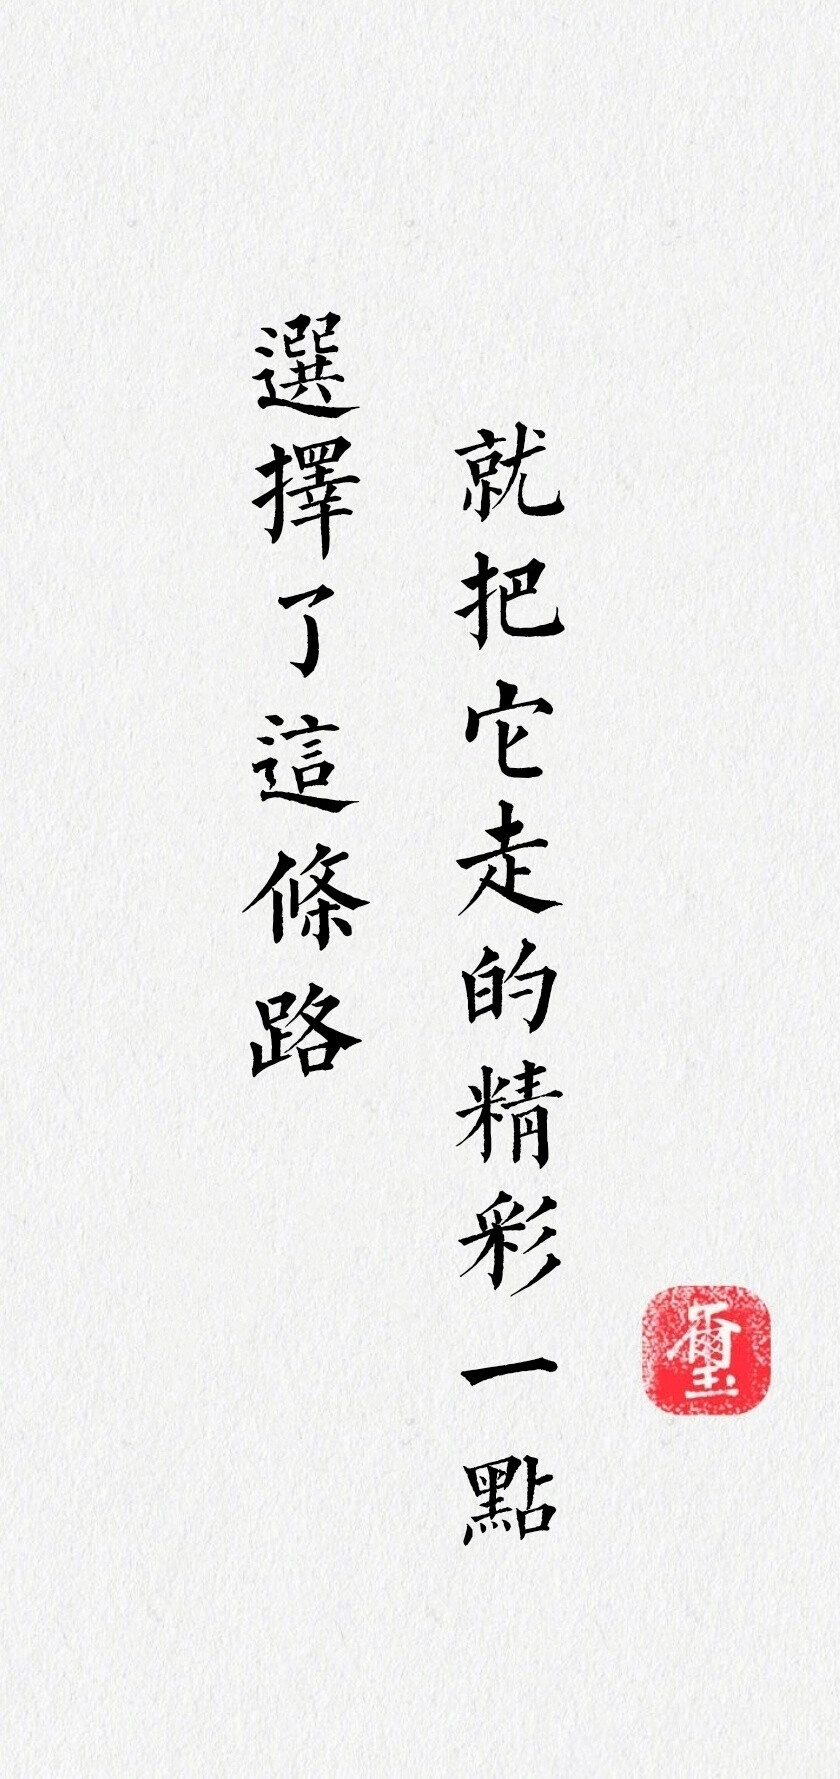 選擇了這條路
就把它走的精彩一點
璽